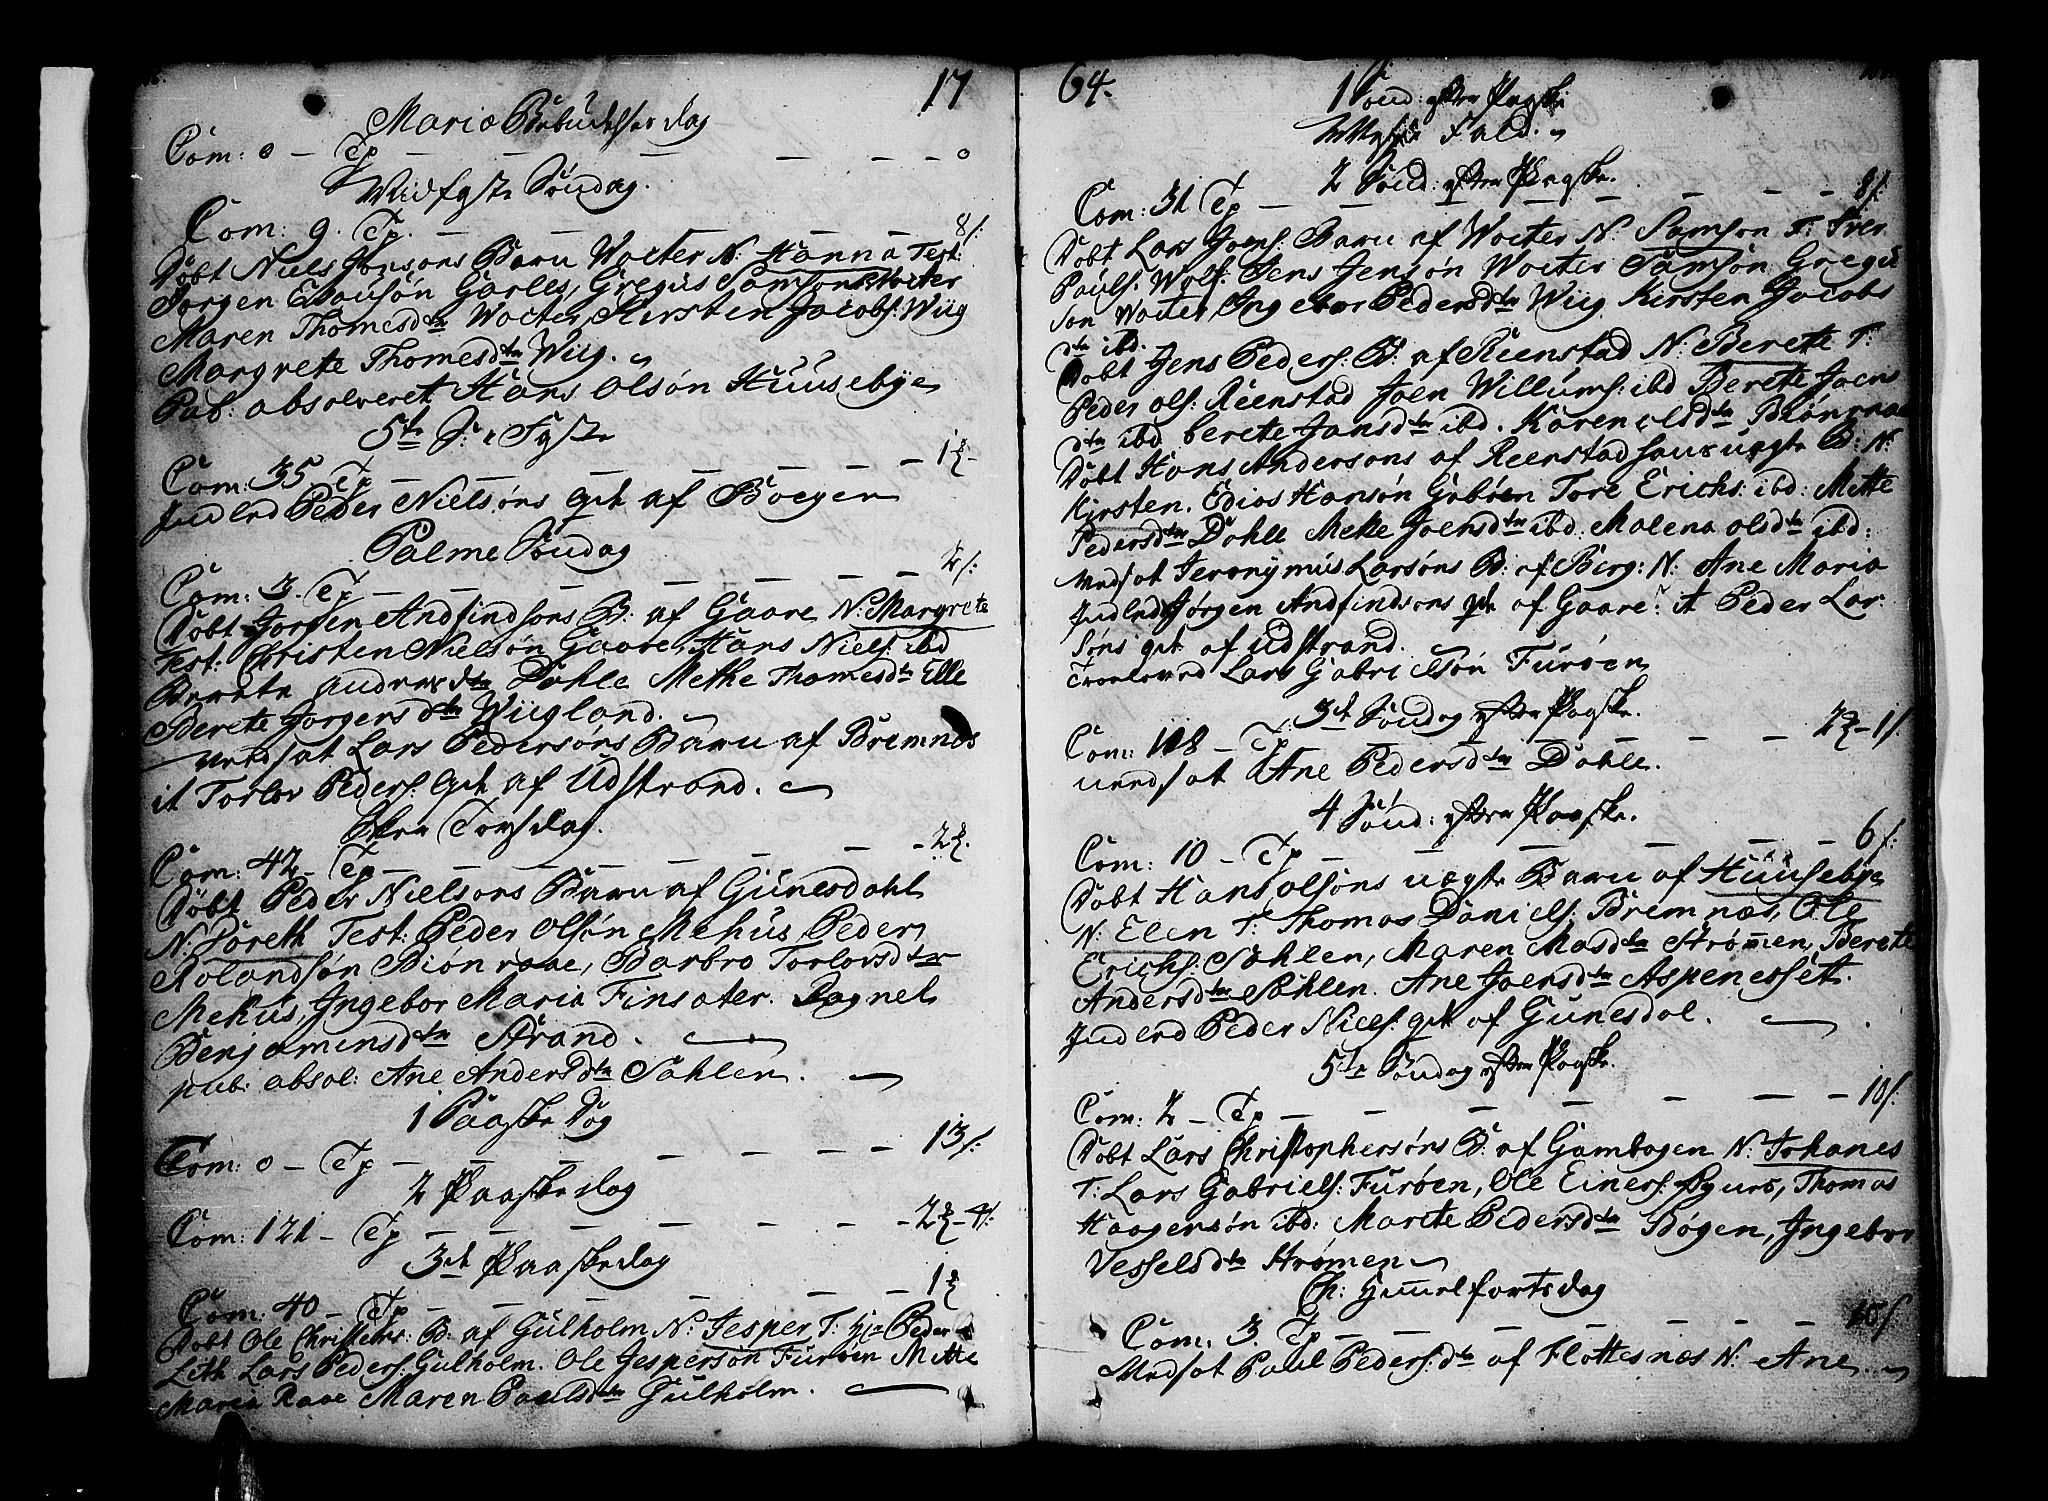 17
Mariæ Bebudelses dag
Com: 0 – Tp – – – – – – 0
Midfaste Søndag.
Com: 9. Tp. – – – – 8 ß:
Døbt Niels Jonsons Barn Wocter N: Hanna Test:
Jørgen Esausøn Gårles, Gregus Samsons: Wocter
Maren Thomesdtr Wocter, Kirsten Jacobs: Wiig
Margrete Thomesdtr Wiig.
Pub: absolveret Hans Olsøn Huusebye
5te S: i Faste
Com: 35 Tp – – – – – 1
Indled Peder Nielsøns qvt af Boegen
Palme Søndag
Com: 3. Tp – – – – – 2 ß:
Døbt Jørgen Andfindsons B: af Gaare N: Margrete
Test: Christen Nielsøn Gaare, Hans Niels: ibd
Berete Andersdtr Dohle Methe Thomesdtr Elle
Berete Jørgensdtr Wiigland.
Uredsat Lars Pedersøns Barn af Bremnes
it Torlov Peders: qvt af Udstrand.
Skier Torsdag.
Com: 42 – Tp – – – – – 2
Døbt Peder Nielsons Barn af Gunesdahl
N: Doreth Test: Peder Olsøn Mehus, Peder
Rolandsøn Biønraae, Barbro Torlovsdtr
Mehus, Ingebor Maria Finsæter. Dagnel
Benjaminsdtr Strand.
pub: absol: Ane Andersdtr Sahlen.
1 Paaske Dag
Com: 0 – Tp – – – – – 13 ß:
2 Paaskedag
Com: 121 – Tp – – – – – 2 – 4 ß:
3de Paaskedag
Com: 40 – Tp – – – – – 1
Døbt Ole Christens: B: af Gulholm N: Jesper T: Hr Peder
Lith Lars Peders: Gulholm. Ole Jespersøn Furøen Mette
Maria Raae Maren Paulsdtr Gulholm.
64.
1 Sønd: efter Paaske
Messe Fald.
2 Sønd: efter Paaske.
Com: 31 Tp – – – – – 8 ß:
Døbt Lars Joens: Barn af Wocter N: Samson T: Iver
Pouls: Wolf: Jens Jensøn Wocter Samson Gregu
son Wocter Ingebor Pedersdtr Wiig Kirsten Jacobs
dtr ibd.
Døbt Jens Peders: B: af Reenstad N: Berete T:
Peder ols: Reenstad Joen Willums: ibd Berete Joens
dtr ibd berete Jansdtr ibd. Karen olsdtr Biønraae
Døbt Hans Andersons af Reenstad B: N:
Kirsten. Edias Hansøn Gobøen Tore Erichs: ibd: Mette
Pedersdtr Dohle Mette Joensdtr ibd. Malena olsdtr ibd:
Uredsat Jeronymus Larsøns B: af Berg: N: Ane Maria
Indled Jørgen Andfindsons qvt af Gaare: it Peder Lar-
søns qvt af Udstrand.
Troeloved Lars Gabrielsøn Furøen
3de Søndag efter Paaske.
Com: 118 – Tp. – – – – – 2 – 1 ß:
uredsat Ane Pedersdtr Dohle.
4 Sønd: efter Paaske.
Com: 10 – Tp – – – – – 6 ß:
Døbt Hans olsøns uægte Barn af Huusebye
N: Elen T: Thomas Daniels: Bremnæs, Ole
Erichs: Sahlen, Maren Masdtr Strømen, Berete
Andersdtr Sahlen. Ane Joensdtr Aspenesset.
Inderd Peder Niels: qvt af Gunesdal.
5te Søndag efter Paaske.
Com: 2 – Tp – – – – – 18 ß:
Døbt Lars Christophersøns B: af Gambogen N: Johanes
T: Lars Gabriels: Furøen, Ole Einers: , Thomas
Haagensøn ibd: Marite Pedersdtr Bøgen, Ingebor
Vesselsdtr Strømen
Ch: Himmelfartsdag
Com. 3. Tp – – – – – 10 ß
Uredsat Paul Peders: dtr af Flottesnæs N: Ane.